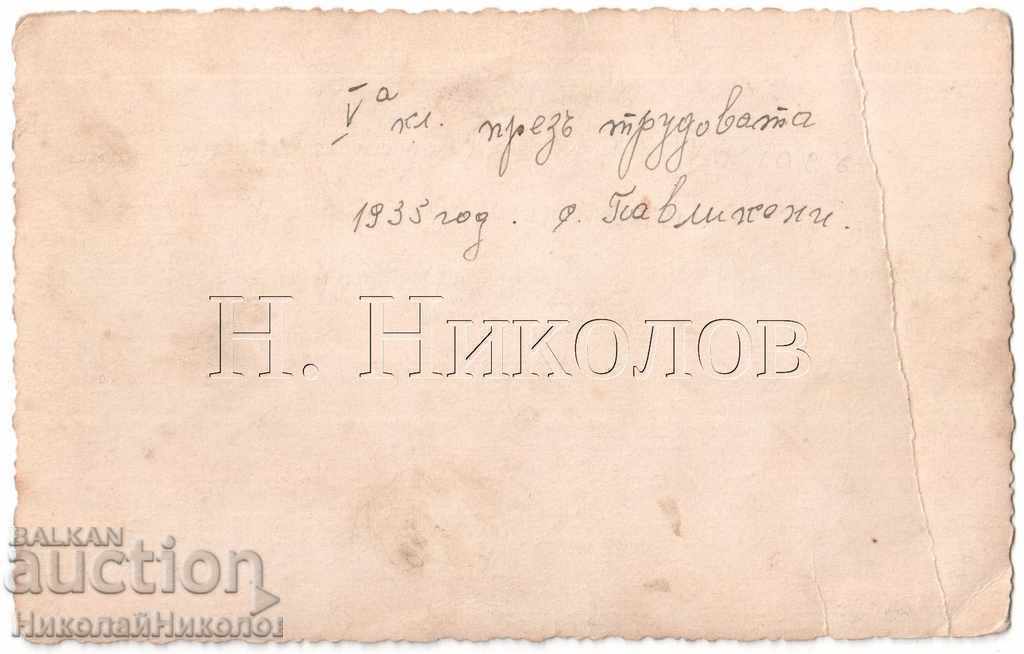 Vа кл. презъ трудовата
1935 год. с. Павликени.
Н. Николов
BALKAN
auction
НиколайНиколов